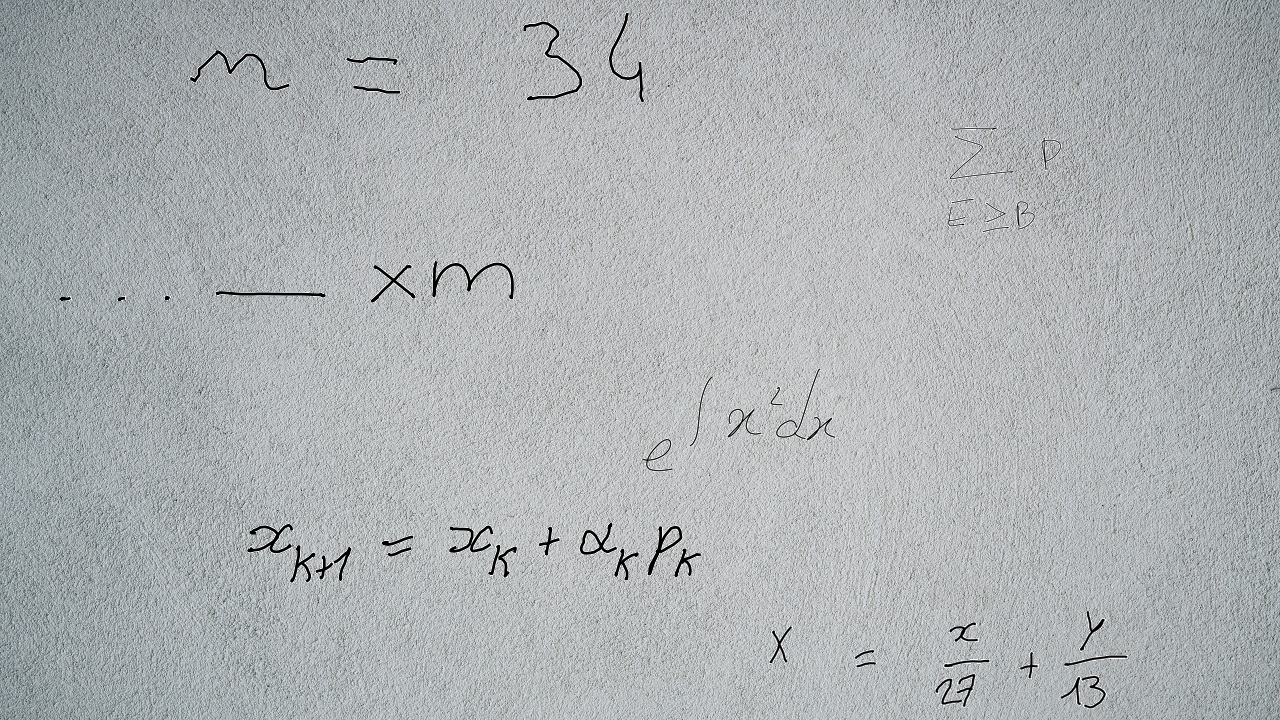 n = 34
∑ P
E ≥ B
. . . — × m
e^{∫ x² dx}
x_{k+1} = x_k + α_k p_k
X = x/27 + y/13